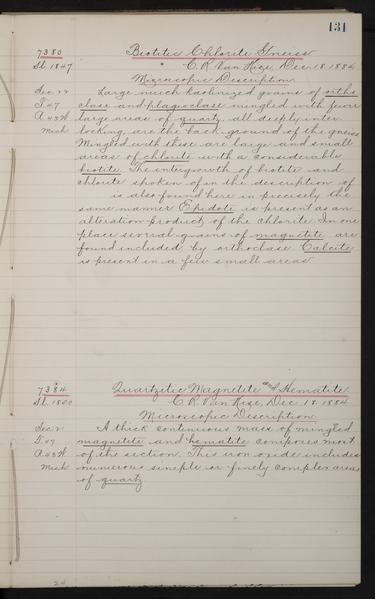 131
7380 Biotitic Chlorite Gneiss
Sl. 1847 C.R. Van Hise, Dec. 18 1884
Microscopic Description
Sec 22 Large much kaolinized grains of ortho
T. 47 clase and plagioclase mingled with fewer
R 43W large areas of quartz, all deeply inter
Mich locking, are the back ground of the gneiss
Mingled with these are large and small
areas of chlorite with a considerable
biotite. The intergrowth of biotite and
chlorite spoken of in the description of
is also found here in precisely the
same manner Epidote is present as an
alteration product of the chlorite. In one
place several grains of magnetite are
found included by orthoclase Calcite
is present in a few small areas
7384 Quartzitic Magnetite and Hematite
Sl. 1800 C.R. Van Hise, Dec 18 1884
Microscopic Description
Sec 21 A thick continuous mass of mingled
T 47 magnetite and hematite composes most
R 43W of the section. This iron oxide includes
Mich numerous simple or finely complex areas
of quartz